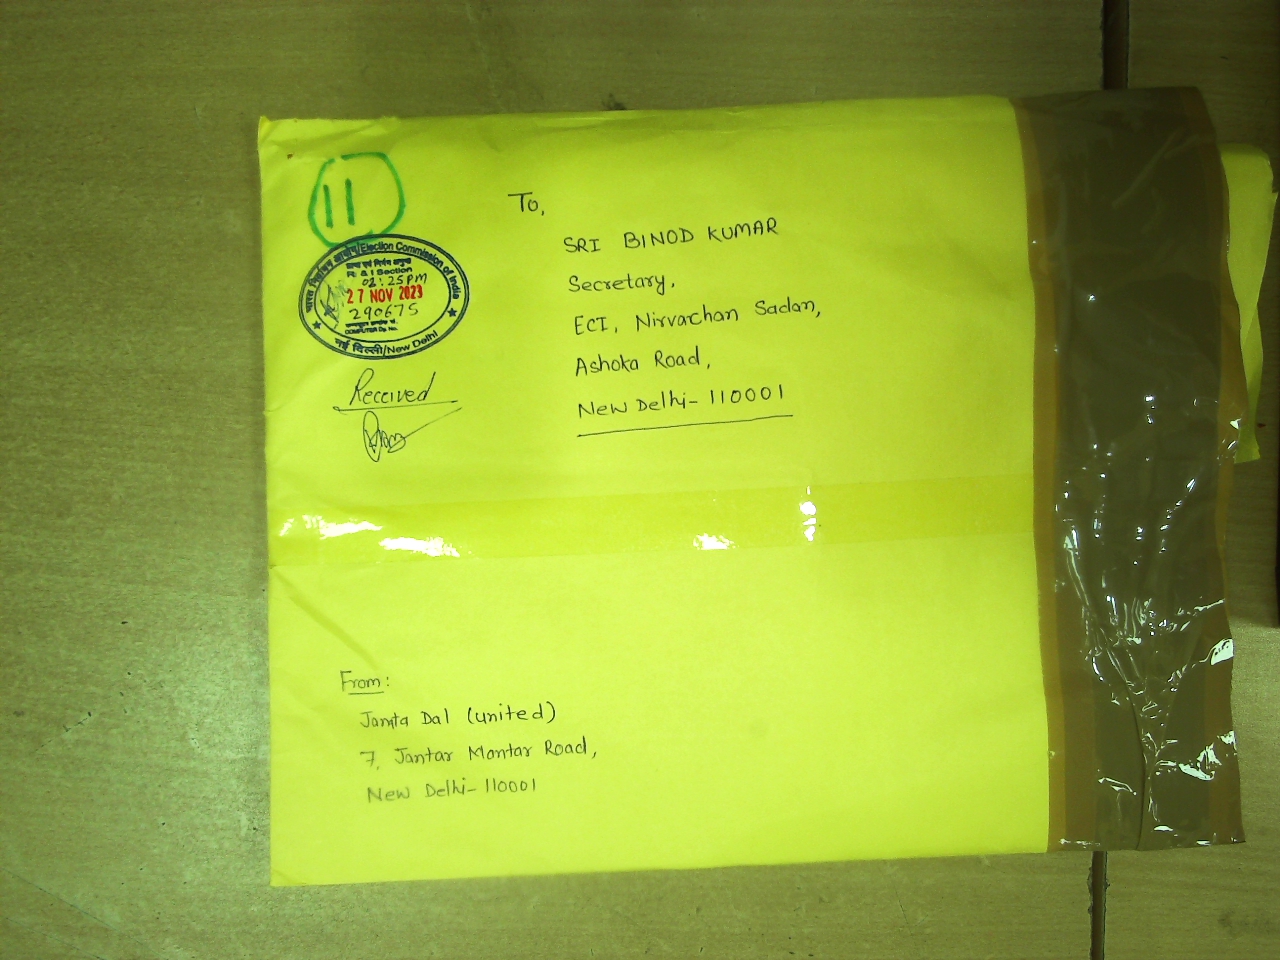 11
भारत निर्वाचन आयोग/Election Commission of India
R & I Section
01:25PM
27 NOV 2023
290675
COMPUTER Dy. No.
नई दिल्ली/New Delhi
Received
To,
SRI BINOD KUMAR
Secretary,
ECI, Nirvachan Sadan,
Ashoka Road,
New Delhi- 110001
From:
Janta Dal (united)
7, Jantar Mantar Road,
New Delhi- 110001